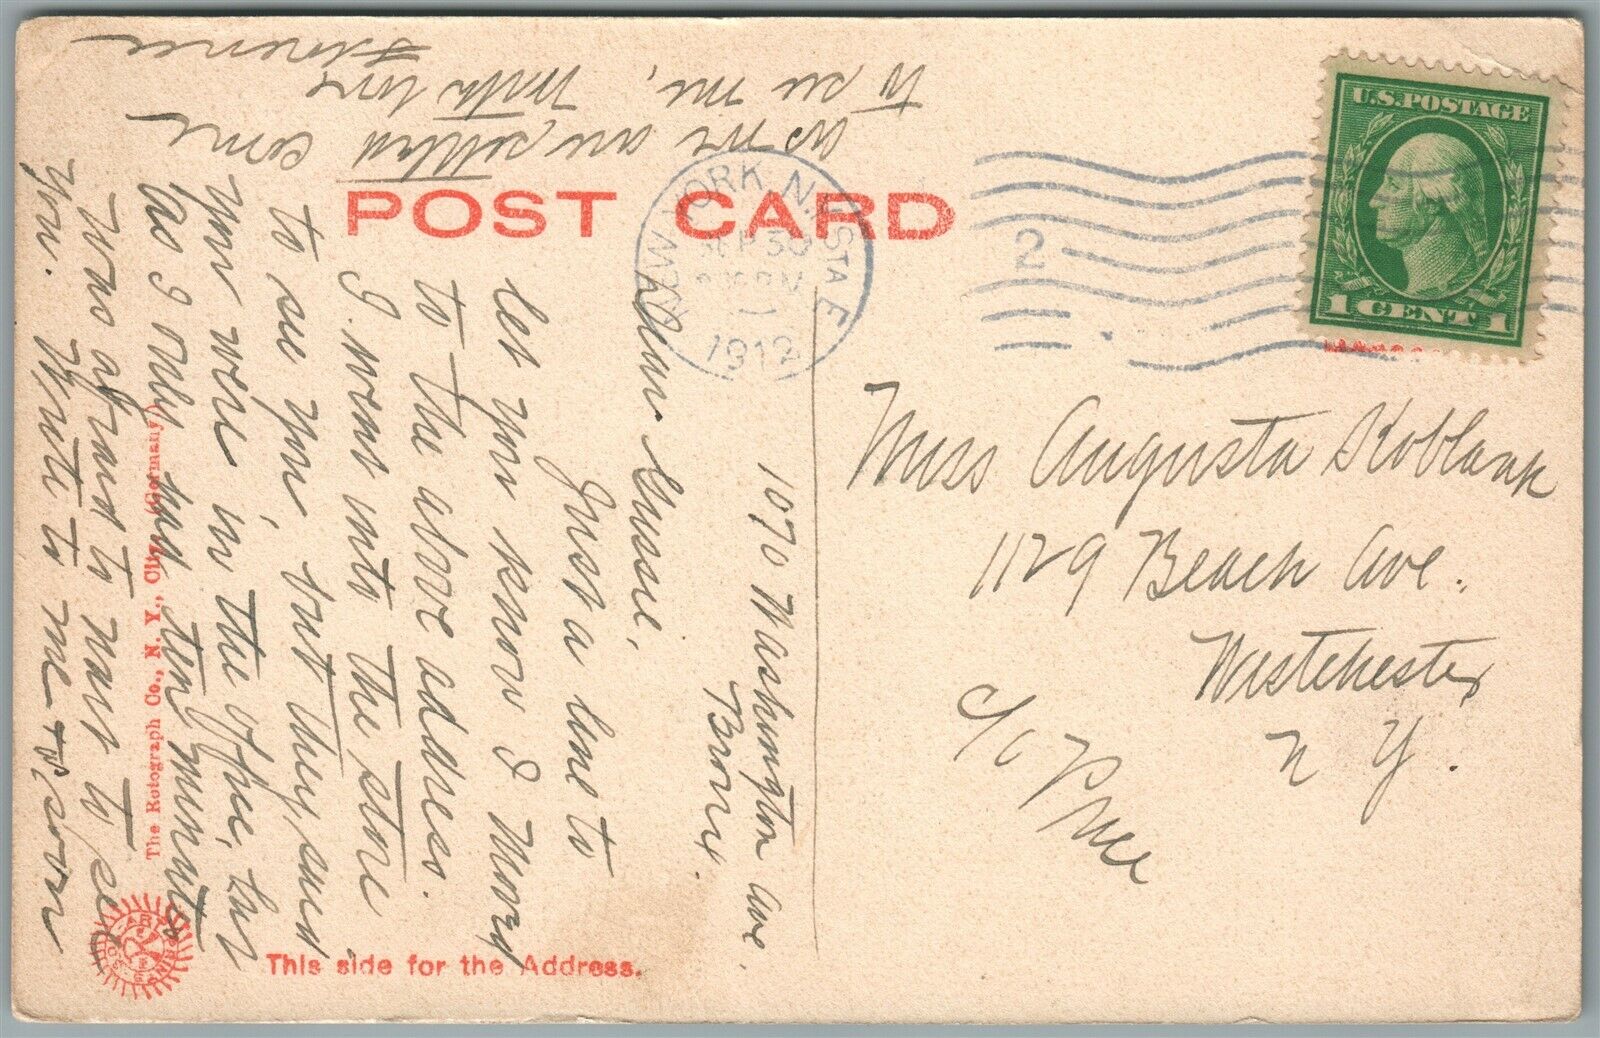 POST CARD
NEW YORK, N.Y. STA E
SEP 30
PM
1912
2
U.S. POSTAGE
1 CENT 1
Miss Augusta Koblank
1129 Beach Ave.
Westchester
N Y.
c/o Price
1070 Washington Ave.
Bronx
Dear Gussie,
Just a line to
let you know I moved
to the above address.
I went into the store
to see you, but they said
you were in the office, but
as I only had ten minutes
was afraid to wait to see
you. Write to me & soon
as we are settled come
to see me, With love
Florence
The Rotograph Co., N. Y. City. (Germany)
This side for the Address.